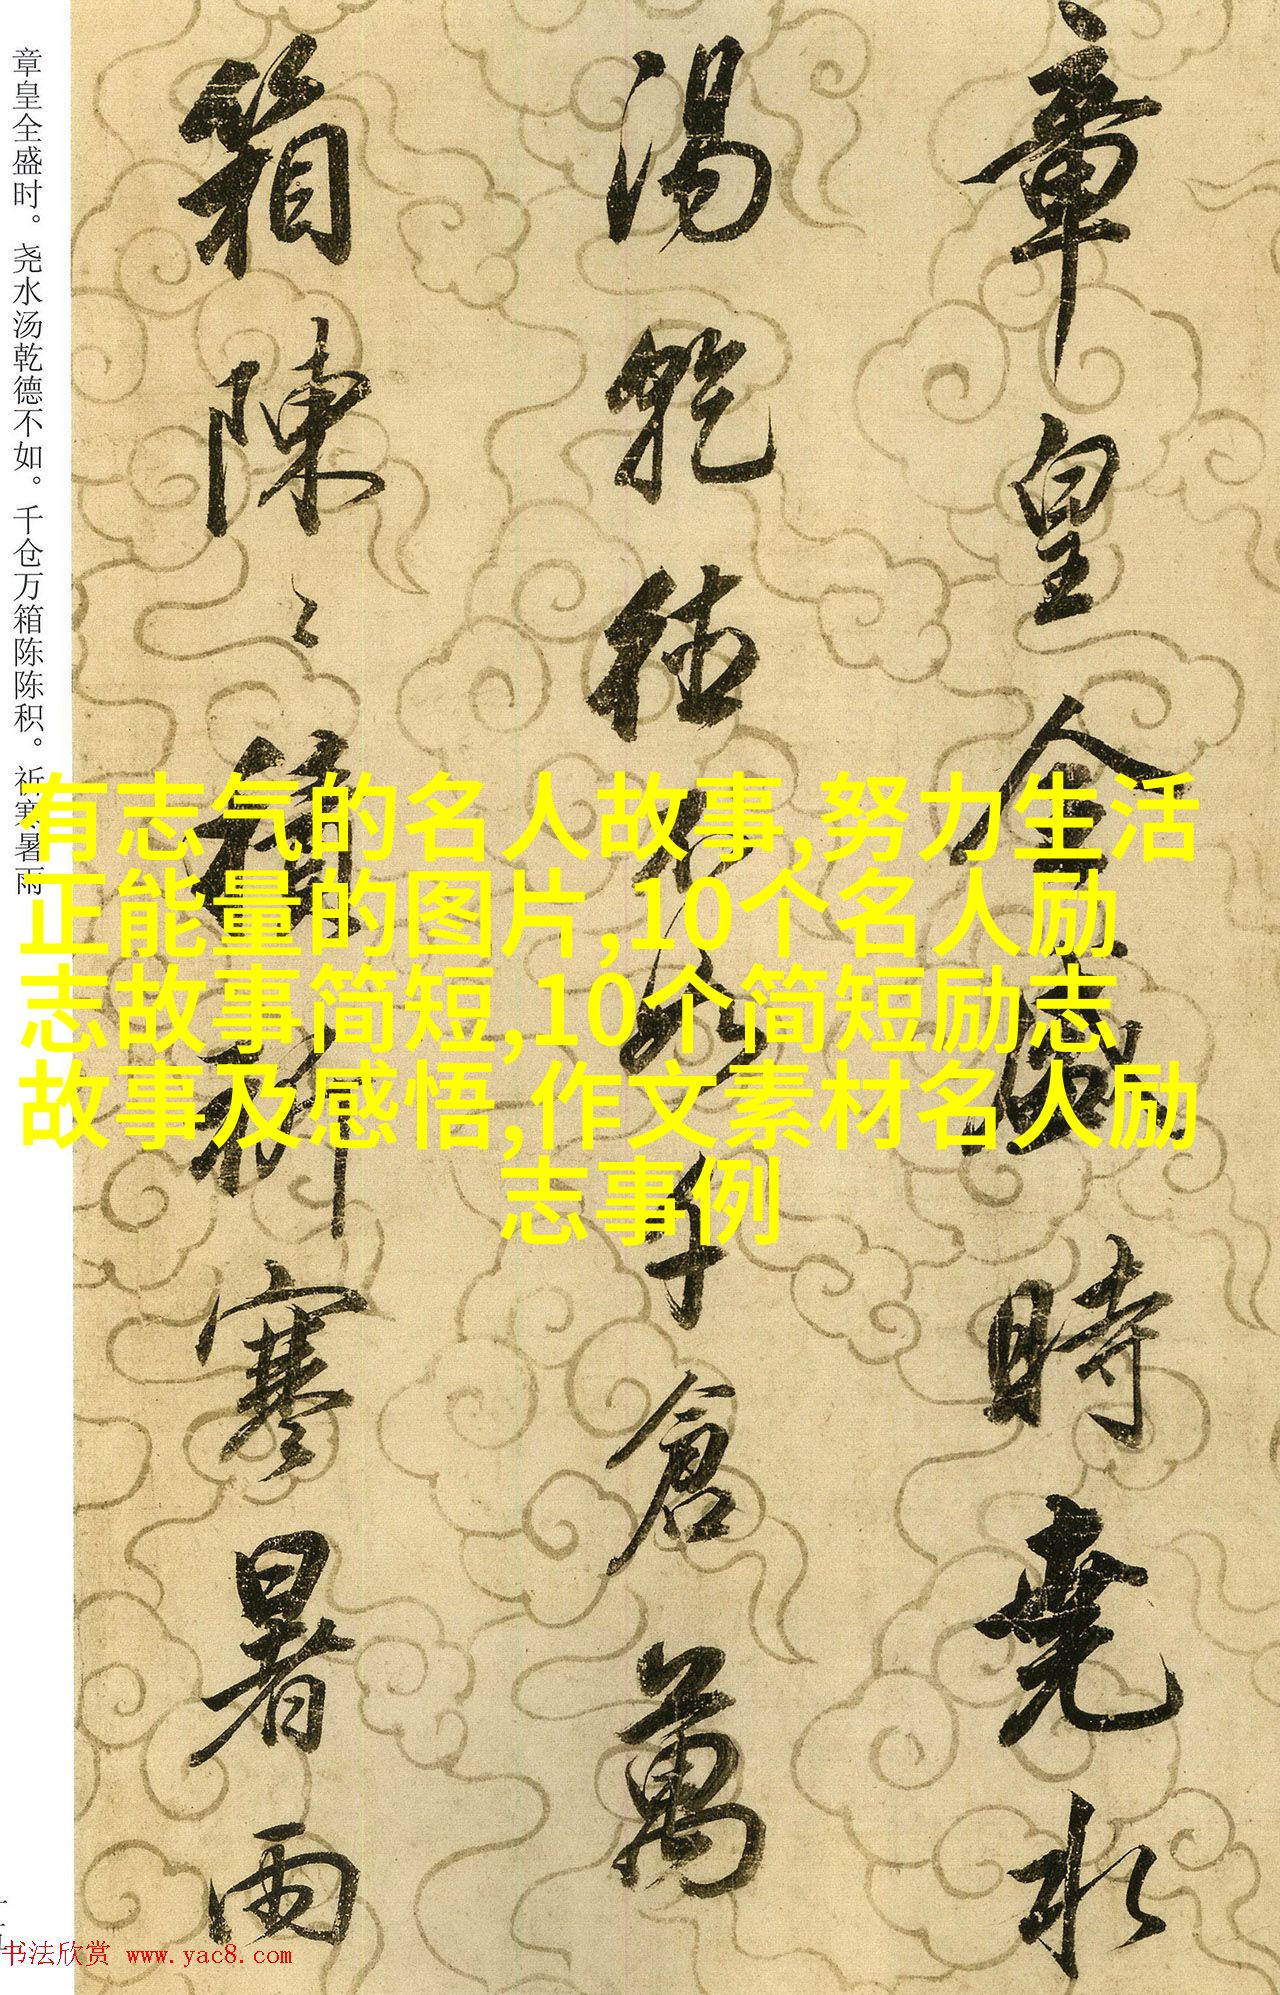 章皇全盛時堯水
湯乾德不如千倉萬
箱陳〻積祈寒暑雨
章皇全盛时。尧水汤乾德不如。千仓万箱陈陈积。祈寒暑雨
有志气的名人故事,努力生活
正能量的图片,10个名人励
志故事简短,10个简短励志
故事及感悟,作文素材名人励
志事例
书法欣赏 www.yac8.com